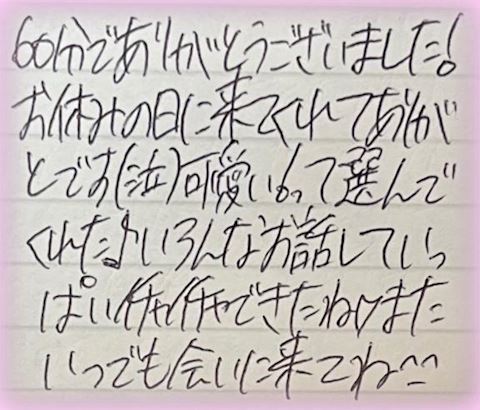 60分でありがとうございました!
お休みの日に来てくれてありが
とです(泣)可愛い!って選んで
くれた♪いろんなお話していっ
ぱいイチャイチャできたね♡また
いつでも会いに来てね^^